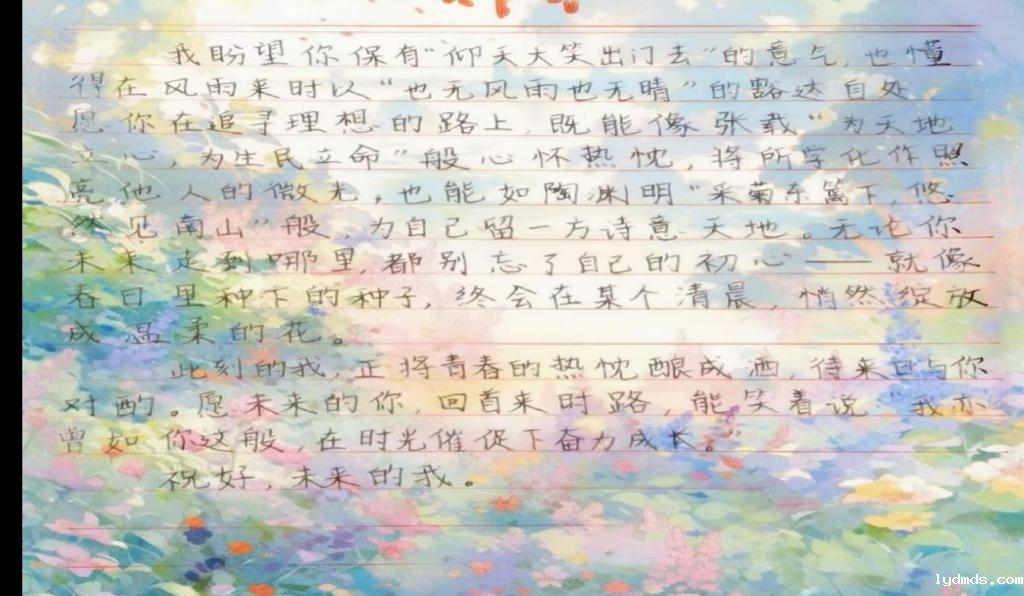 我盼望你保有“仰天大笑出门去”的意气,也懂
得在风雨来时以“也无风雨也无晴”的豁达自处
愿你在追寻理想的路上,既能像张载“为天地
立心,为生民立命”般心怀热忱,将所学化作照
亮他人的微光,也能如陶渊明“采菊东篱下,悠
然见南山”般,为自己留一方诗意天地。无论你
未来走到哪里,都别忘了自己的初心——就像
春日里种下的种子,终会在某个清晨,悄然绽放
成温柔的花。
此刻的我,正将青春的热忱酿成酒,待来日与你
对酌。愿未来的你,回首来时路,能笑着说“我亦
曾如你这般,在时光催促下奋力成长。”
祝好,未来的我。
lydmds.com